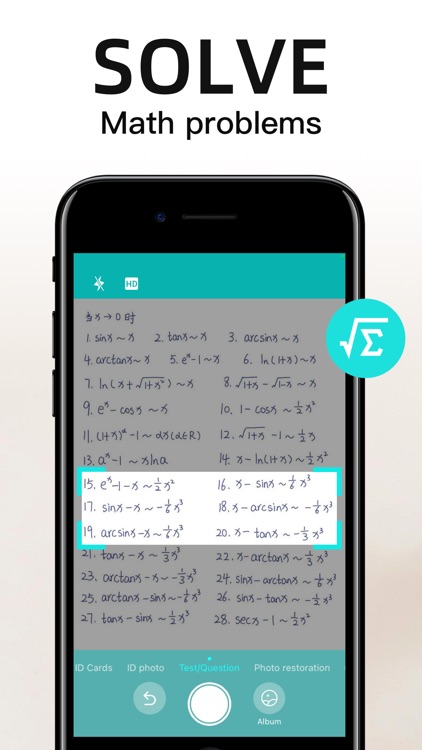 SOLVE
Math problems
HD
√Σ
当x→0时
1. sinx ~ x 2. tanx ~ x 3. arcsinx ~ x
4. arctanx ~ x 5. eˣ-1 ~ x 6. ln(1+x) ~ x
7. ln(x+√(1+x²)) ~ x 8. √(1+x) - √(1-x) ~ x
9. eˣ-cosx ~ x 10. 1-cosx ~ ½x²
11. (1+x)^α-1 ~ αx(α∈R) 12. √(1+x) -1 ~ ½x
13. aˣ-1 ~ xlna 14. x-ln(1+x) ~ ½x²
15. eˣ-1-x ~ ½x² 16. x-sinx ~ ⅙x³
17. sinx-x ~ -⅙x³ 18. x-arcsinx ~ -⅙x³
19. arcsinx-x ~ ⅙x³ 20. x-tanx ~ -⅓x³
21. tanx-x ~ ⅓x³ 22. x-arctanx ~ ⅓x³
23. arctanx-x ~ -⅓x³ 24. sinx-arctanx ~ ⅙x³
25. arctanx-sinx ~ -⅙x³ 26. sinx-tanx ~ -½x³
27. tanx-sinx ~ ½x³ 28. secx-1 ~ ½x²
ID Cards ID photo Test/Question Photo restoration
Album